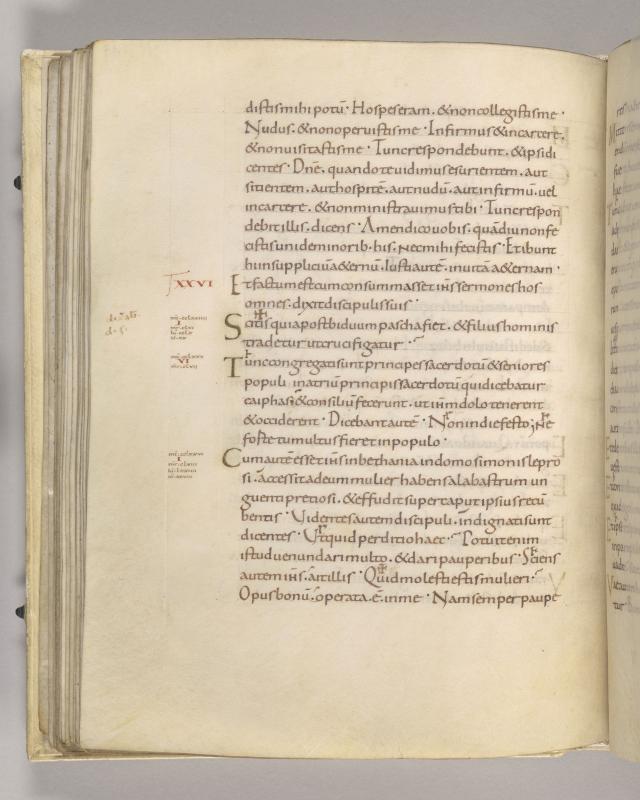 distis mihi potū· Hospes eram· & non collegistis me·
Nudus· & non operuistis me· Infirmus & in carcere·
& non uisitastis me· Tunc respondebunt· & ipsi di
centes· Dnē· quando te uidimus esurientem· aut
sitientem· aut hospitē· aut nudū· aut infirmū· uel
in carcere· & non ministrauimus tibi· Tunc respon
debit illis· dicens· Amen dico uobis· quādiu non fe
cistis uni de minorib· his· nec mihi fecistis· Et ibunt
hi in suppliciū a&ernū· Iusti autē· in uitā a&ernam·
XXVI
Et factum est cum consummasset ih̄s sermones hos
omnes· dixit discipulis suis·
Scitis quia post biduum pascha fiet· & filius hominis
tradetur ut crucifigatur·
VI
Tunc congregati sunt principes sacerdotū & seniores
populi in atriū principis sacerdotū qui dicebatur
caiphas· & consiliū fecerunt· ut ih̄m dolo tenerent
& occiderent· Dicebant autē· Non in die festo; Ne
forte tumultus fieret in populo·
Cum autē esset ih̄s in bethania in domo simonis lepro
si· accessit ad eum mulier habens alabastrum un
guenti pretiosi· & effudit super caput ipsius recū
bentis· Videntes autem discipuli· indignati sunt
dicentes· Ut quid perditio haec· Potuit enim
istud uenundari multo· & dari pauperibus· Sciens
autem ih̄s· ait illis· Quid molesti estis mulieri·
Opus bonū· operata· ē· in me· Nam semper paupe